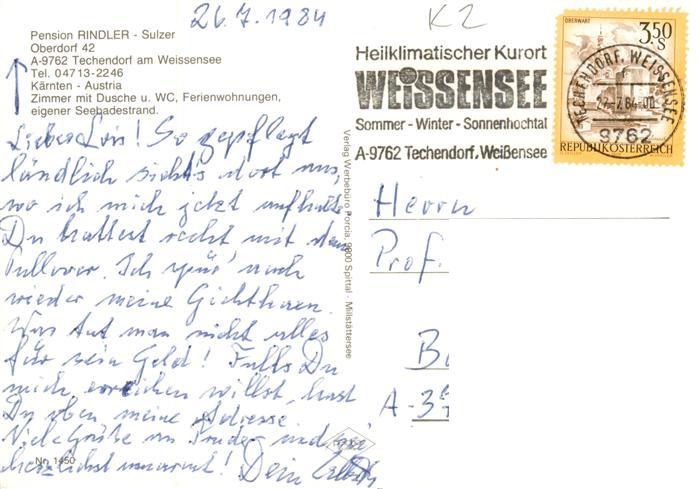 26.7.1984
K2
Pension RINDLER - Sulzer
Oberdorf 42
A-9762 Techendorf am Weissensee
Tel. 04713-2246
Kärnten - Austria
Zimmer mit Dusche u. WC, Ferienwohnungen,
eigener Seebadestrand.
Lieber Lois! So gepflegt
ländlich sieht's dort aus,
wo ich mich jetzt aufhalte.
Du hattest recht mit dem
Pullover. Ich spür' auch
wieder meine Gichthaxen.
Was tut man nicht alles
für sein Geld! Falls Du
mich erreichen willst, hast
Du oben meine Adresse.
Viele Grüße an und sei
herzlichst umarmt! Dein
Nr. 1450
Verlag Werbebüro Porcia, 9800 Spittal - Millstättersee
Heilklimatischer Kurort
WEISSENSEE
Sommer - Winter - Sonnenhochtal
A-9762 Techendorf, Weißensee
OBERWART
3,50
S
TECHENDORF, WEISSENSEE
27.-7.84-00
9762
REPUBLIK ÖSTERREICH
Herrn
Prof.
B
A-3